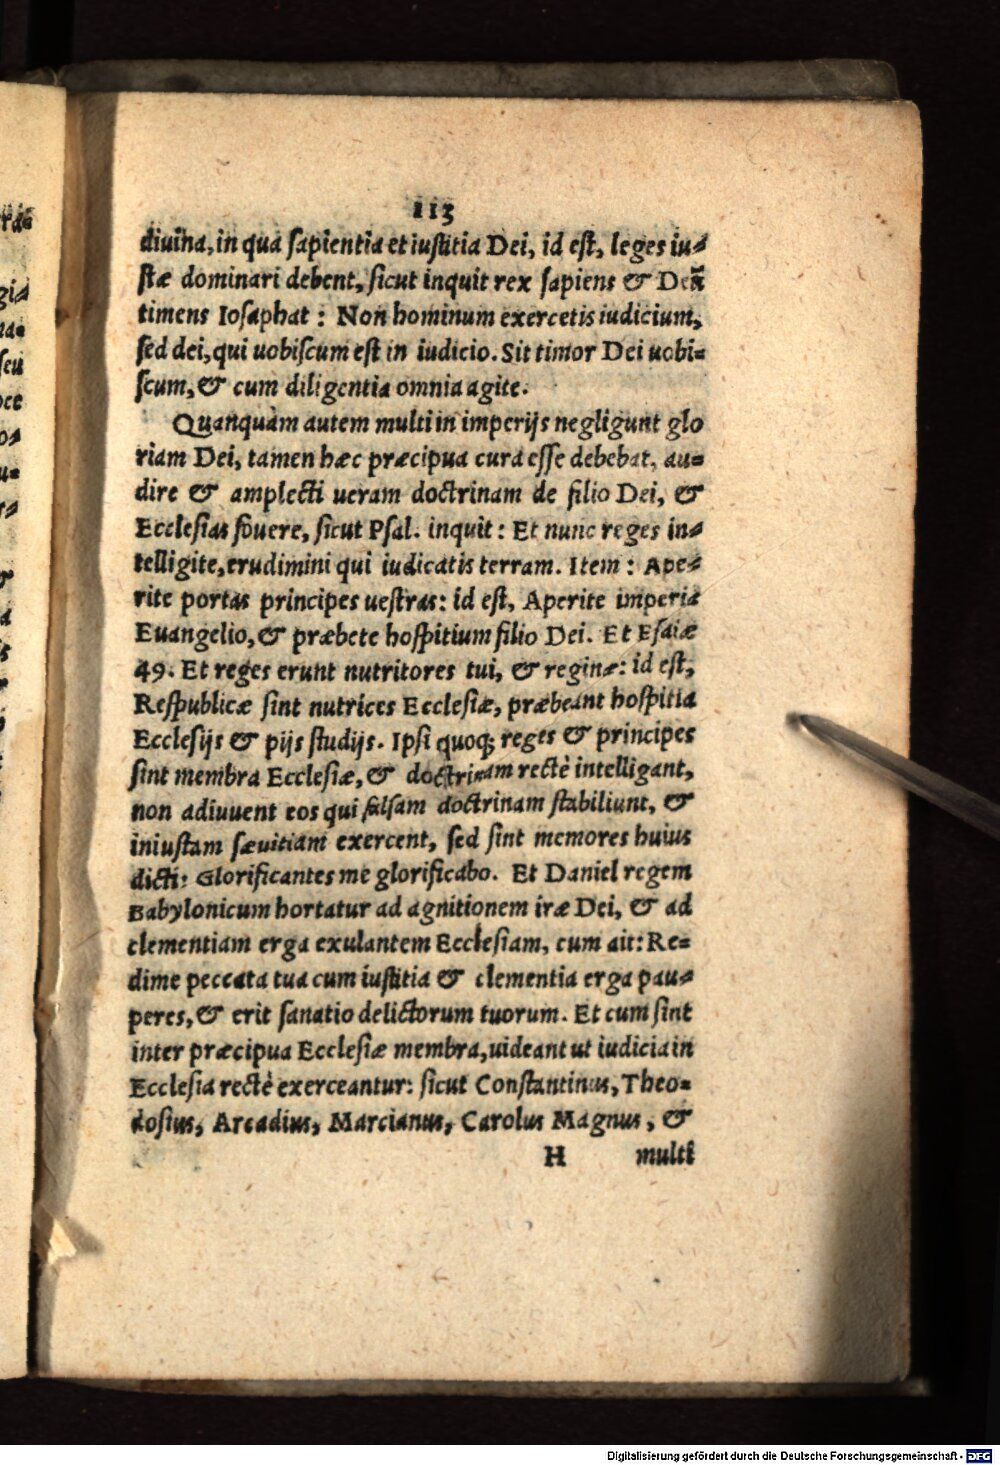 113
diuina, in qua sapientia et iustitia Dei, id est, leges iu-
stæ dominari debent, sicut inquit rex sapiens & Deũ
timens Iosaphat : Non hominum exercetis iudicium,
sed dei, qui uobiscum est in iudicio. Sit timor Dei uobi-
scum, & cum diligentia omnia agite.
Quanquàm autem multi in imperijs negligunt glo
riam Dei, tamen hæc præcipua cura esse debebat, au-
dire & amplecti ueram doctrinam de filio Dei, &
Ecclesias fouere, sicut Psal. inquit : Et nunc reges in-
telligite, erudimini qui iudicatis terram. Item : Ape-
rite portas principes uestras: id est, Aperite imperia
Euangelio, & præbete hospitium filio Dei. Et Esaiæ
49. Et reges erunt nutritores tui, & reginæ: id est,
Respublicæ sint nutrices Ecclesiæ, præbeant hospitia
Ecclesijs & pijs studijs. Ipsi quoq; reges & principes
sint membra Ecclesiæ, & doctrinam rectè intelligant,
non adiuuent eos qui falsam doctrinam stabiliunt, &
iniustam sæuitiam exercent, sed sint memores huius
dicti: Glorificantes me glorificabo. Et Daniel regem
Babylonicum hortatur ad agnitionem iræ Dei, & ad
clementiam erga exulantem Ecclesiam, cum ait: Re-
dime peccata tua cum iustitia & clementia erga pau-
peres, & erit sanatio delictorum tuorum. Et cum sint
inter præcipua Ecclesiæ membra, uideant ut iudicia in
Ecclesia rectè exerceantur: sicut Constantinus, Theo-
dosius, Arcadius, Marcianus, Carolus Magnus, &
H multi
Digitalisierung gefördert durch die Deutsche Forschungsgemeinschaft - DFG